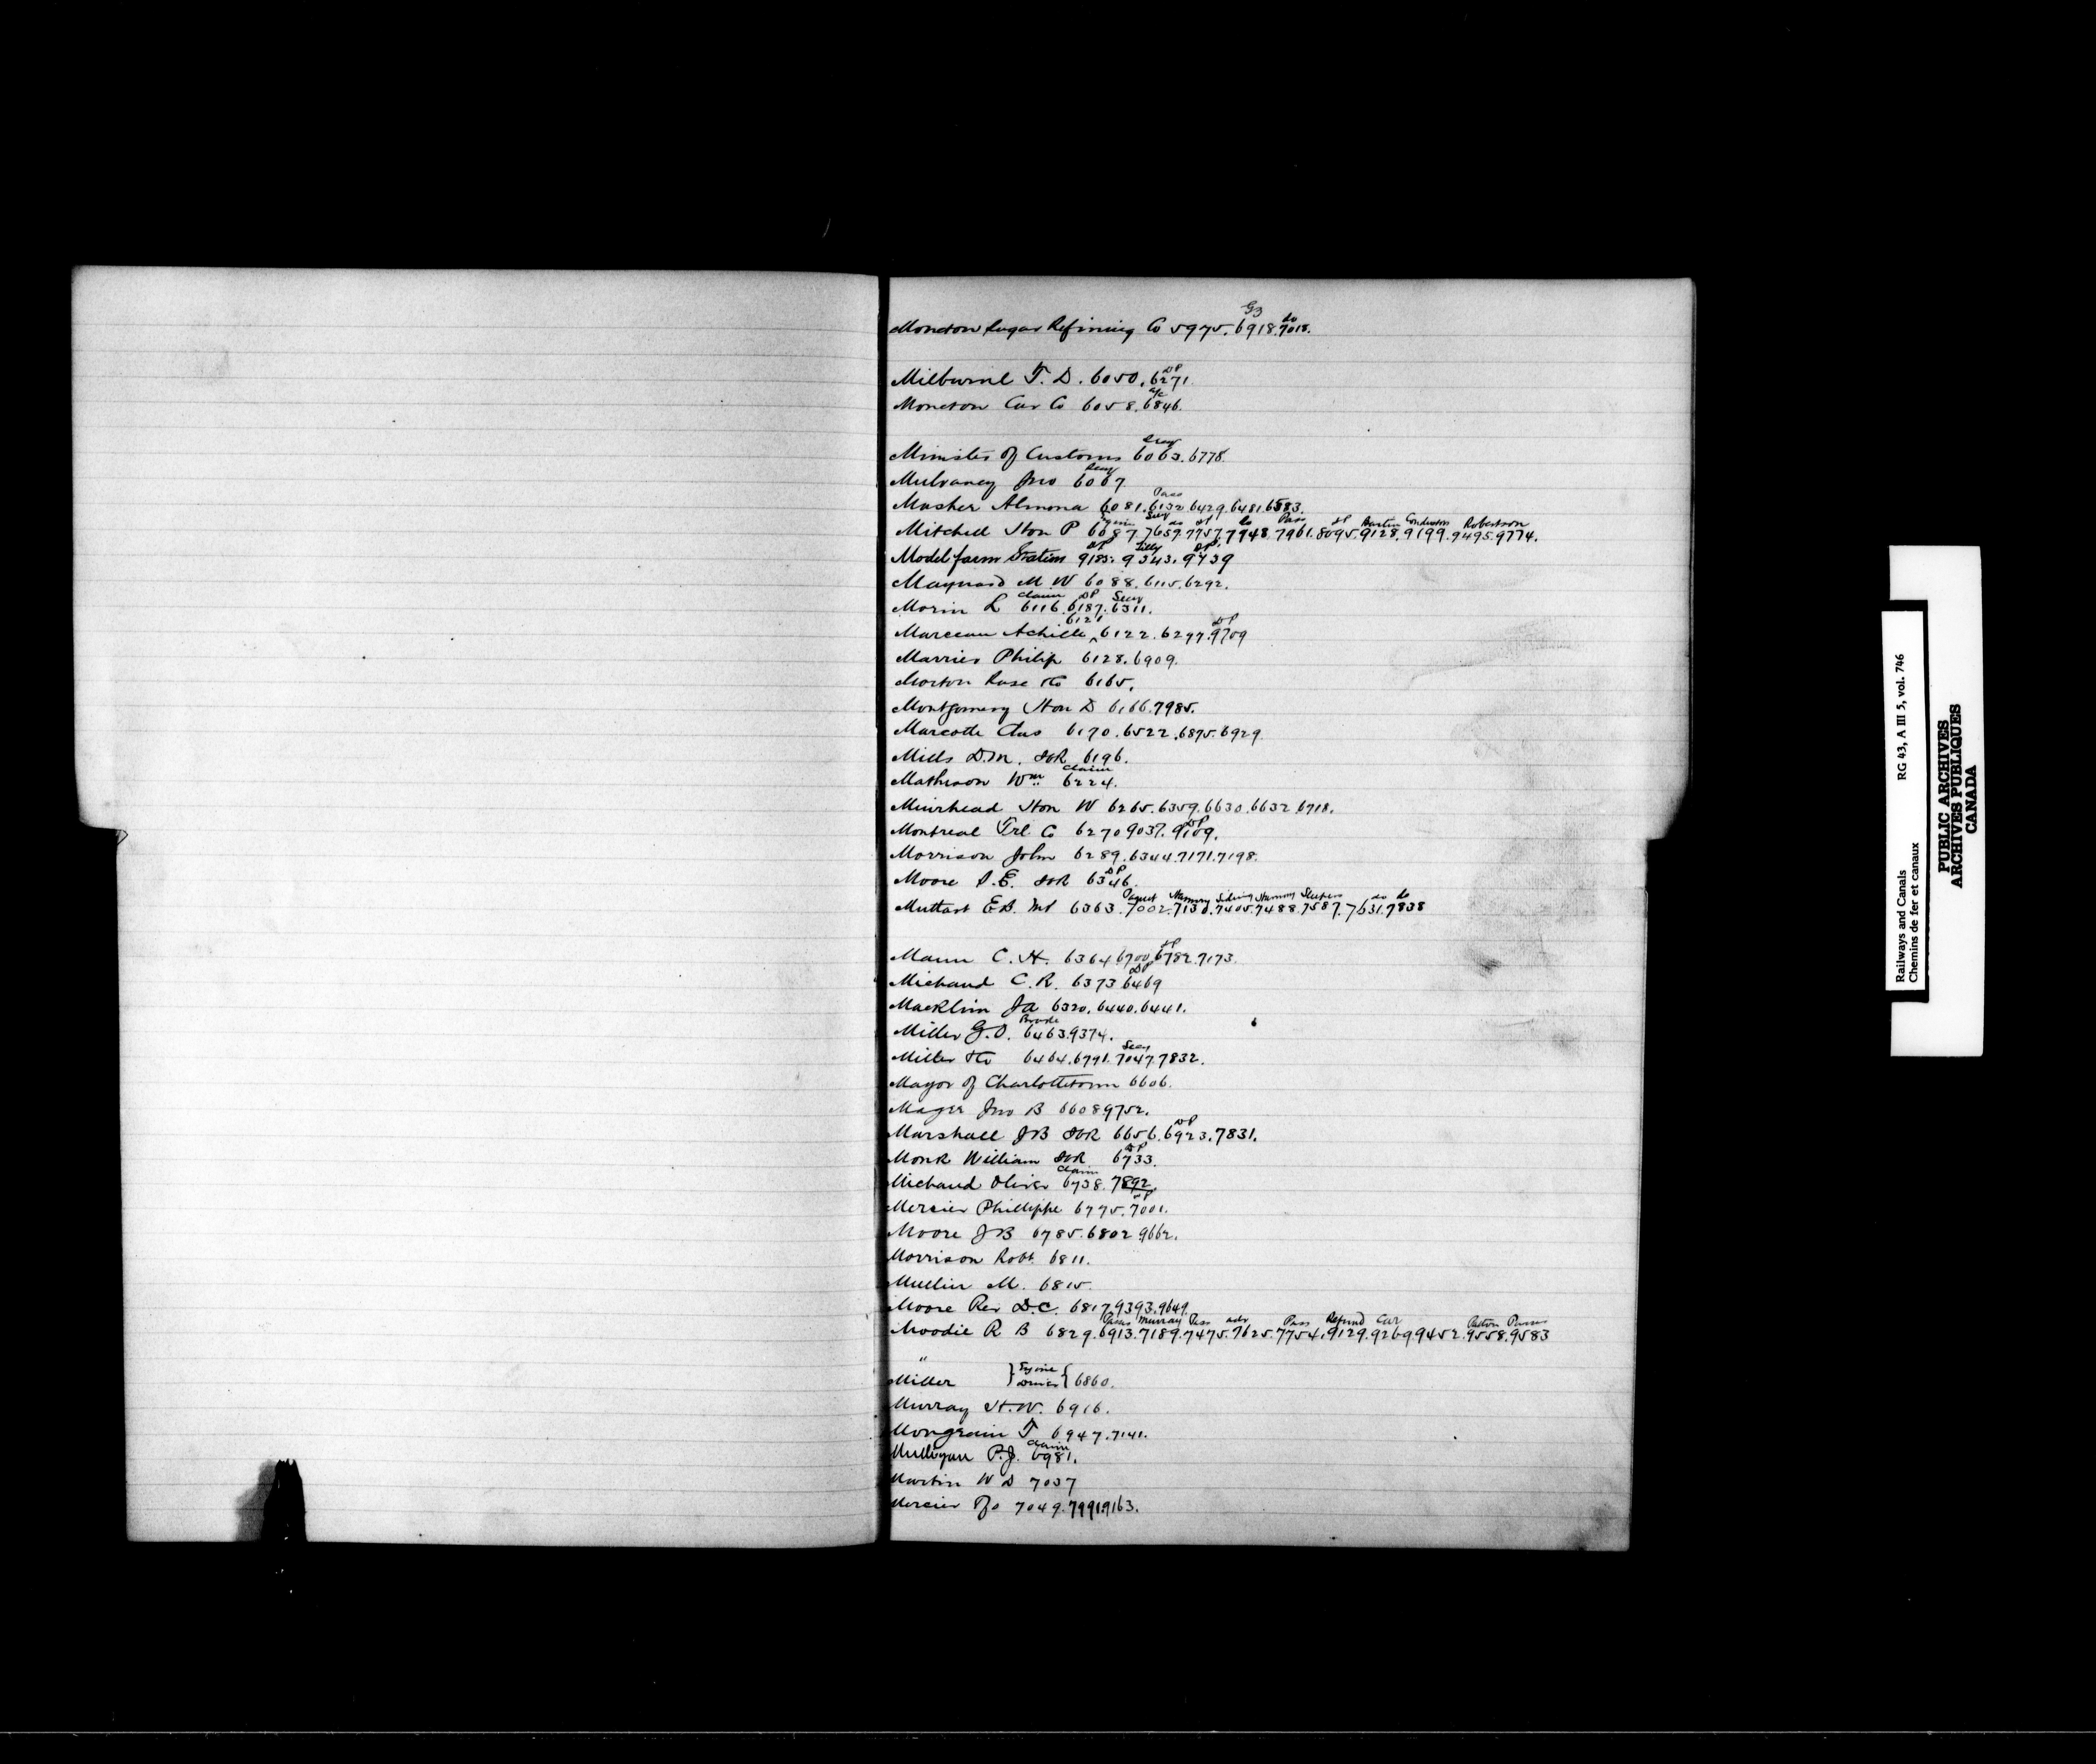 Moncton Sugar Refining Co 5975. 6918. 7018.
Milburne T. D. 6050. 6271
Moncton Car Co 6058. 6846.
Minister of Customs 6063. 6778.
Mulvaney Jno 6067
Mosher Almona 6081. 6132. 6429. 6481. 6583.
Mitchell Hon P 6087. 7659. 7757. 7948. 7961. 8095. 9128. 9199. 9495. 9774.
Model farm Station 9185. 9343. 9739
Maynard M W 6088. 6115. 6292.
Morin L 6116. 6187. 6311.
6121
Marceau Achille ^ 6122. 6277. 9709
Marrier Philip 6128. 6909.
Morton Rose &Co 6165.
Montgomery Hon D 6166. 7985.
Marcotte Chas 6170. 6522. 6875. 6929
Mills D.M. 6196.
claim
Matheson Wm 6224.
Muirhead Hon W 6265. 6359. 6630. 6632. 6718.
Montreal Tel. Co 6270 9037. 9109.
Morrison John 6289. 6344. 7171. 7198.
Moore S.E. 6346.
Muttart E.B. MP 6363. 7002. 7130. 7405. 7488. 7587. 7631. 7838
Mann C. H. 6364 6700 6782. 7173
Michaud C. R. 6373 6469
Macklin Ja 6320. 6440. 6441.
Miller G.O. 6463. 9374.
Secy
Miller &Co 6464. 6791. 7047. 7832.
Mayor of Charlottetown 6606.
Mager Jno B 6608 9752.
Marshall J B 6656. 6923. 7831.
Monk William 6733.
claim
Michaud Oliver 6738. 7892.
Mercier Phillippe 6775. 7001.
Moore J B 6785. 6802 9662.
Morrison Robt. 6811.
Mullin M. 6815.
Moore Rev D.C. 6817. 9393. 9649.
Pass Murray Pass adv Pass Refund Car
Moodie R B 6829. 6913. 7189. 7475. 7625. 7754. 9129. 9269 9452. 9558. 9583
"
Miller } Engine Driver { 6860.
Murray H.W. 6916.
Mongrain T 6947. 7141.
claim
Mulligan P.J. 6981.
Martin W D 7037
Mercier 7049. 7991. 9163.
Railways and Canals RG 43, A III 5, vol. 746
Chemins de fer et canaux
PUBLIC ARCHIVES
ARCHIVES PUBLIQUES
CANADA